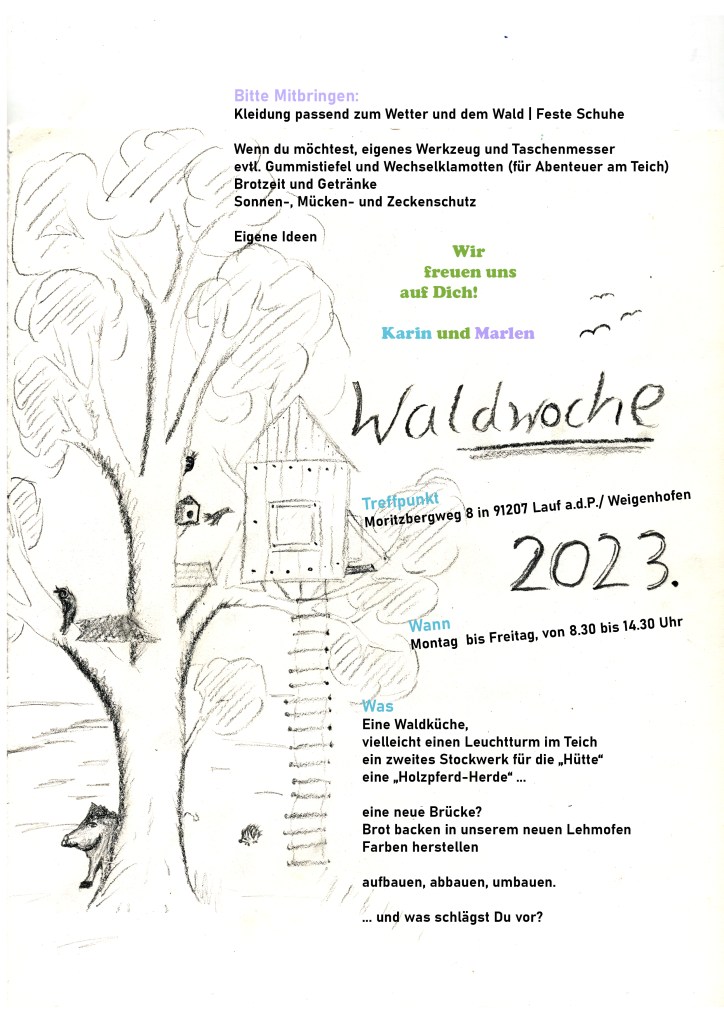 Bitte Mitbringen:
Kleidung passend zum Wetter und dem Wald | Feste Schuhe
Wenn du möchtest, eigenes Werkzeug und Taschenmesser
evtl. Gummistiefel und Wechselklamotten (für Abenteuer am Teich)
Brotzeit und Getränke
Sonnen-, Mücken- und Zeckenschutz
Eigene Ideen
Wir
freuen uns
auf Dich!
Karin und Marlen
Waldwoche
Treffpunkt
Moritzbergweg 8 in 91207 Lauf a.d.P./ Weigenhofen
2023.
Wann
Montag bis Freitag, von 8.30 bis 14.30 Uhr
Was
Eine Waldküche,
vielleicht einen Leuchtturm im Teich
ein zweites Stockwerk für die „Hütte“
eine „Holzpferd-Herde“ ...
eine neue Brücke?
Brot backen in unserem neuen Lehmofen
Farben herstellen
aufbauen, abbauen, umbauen.
... und was schlägst Du vor?